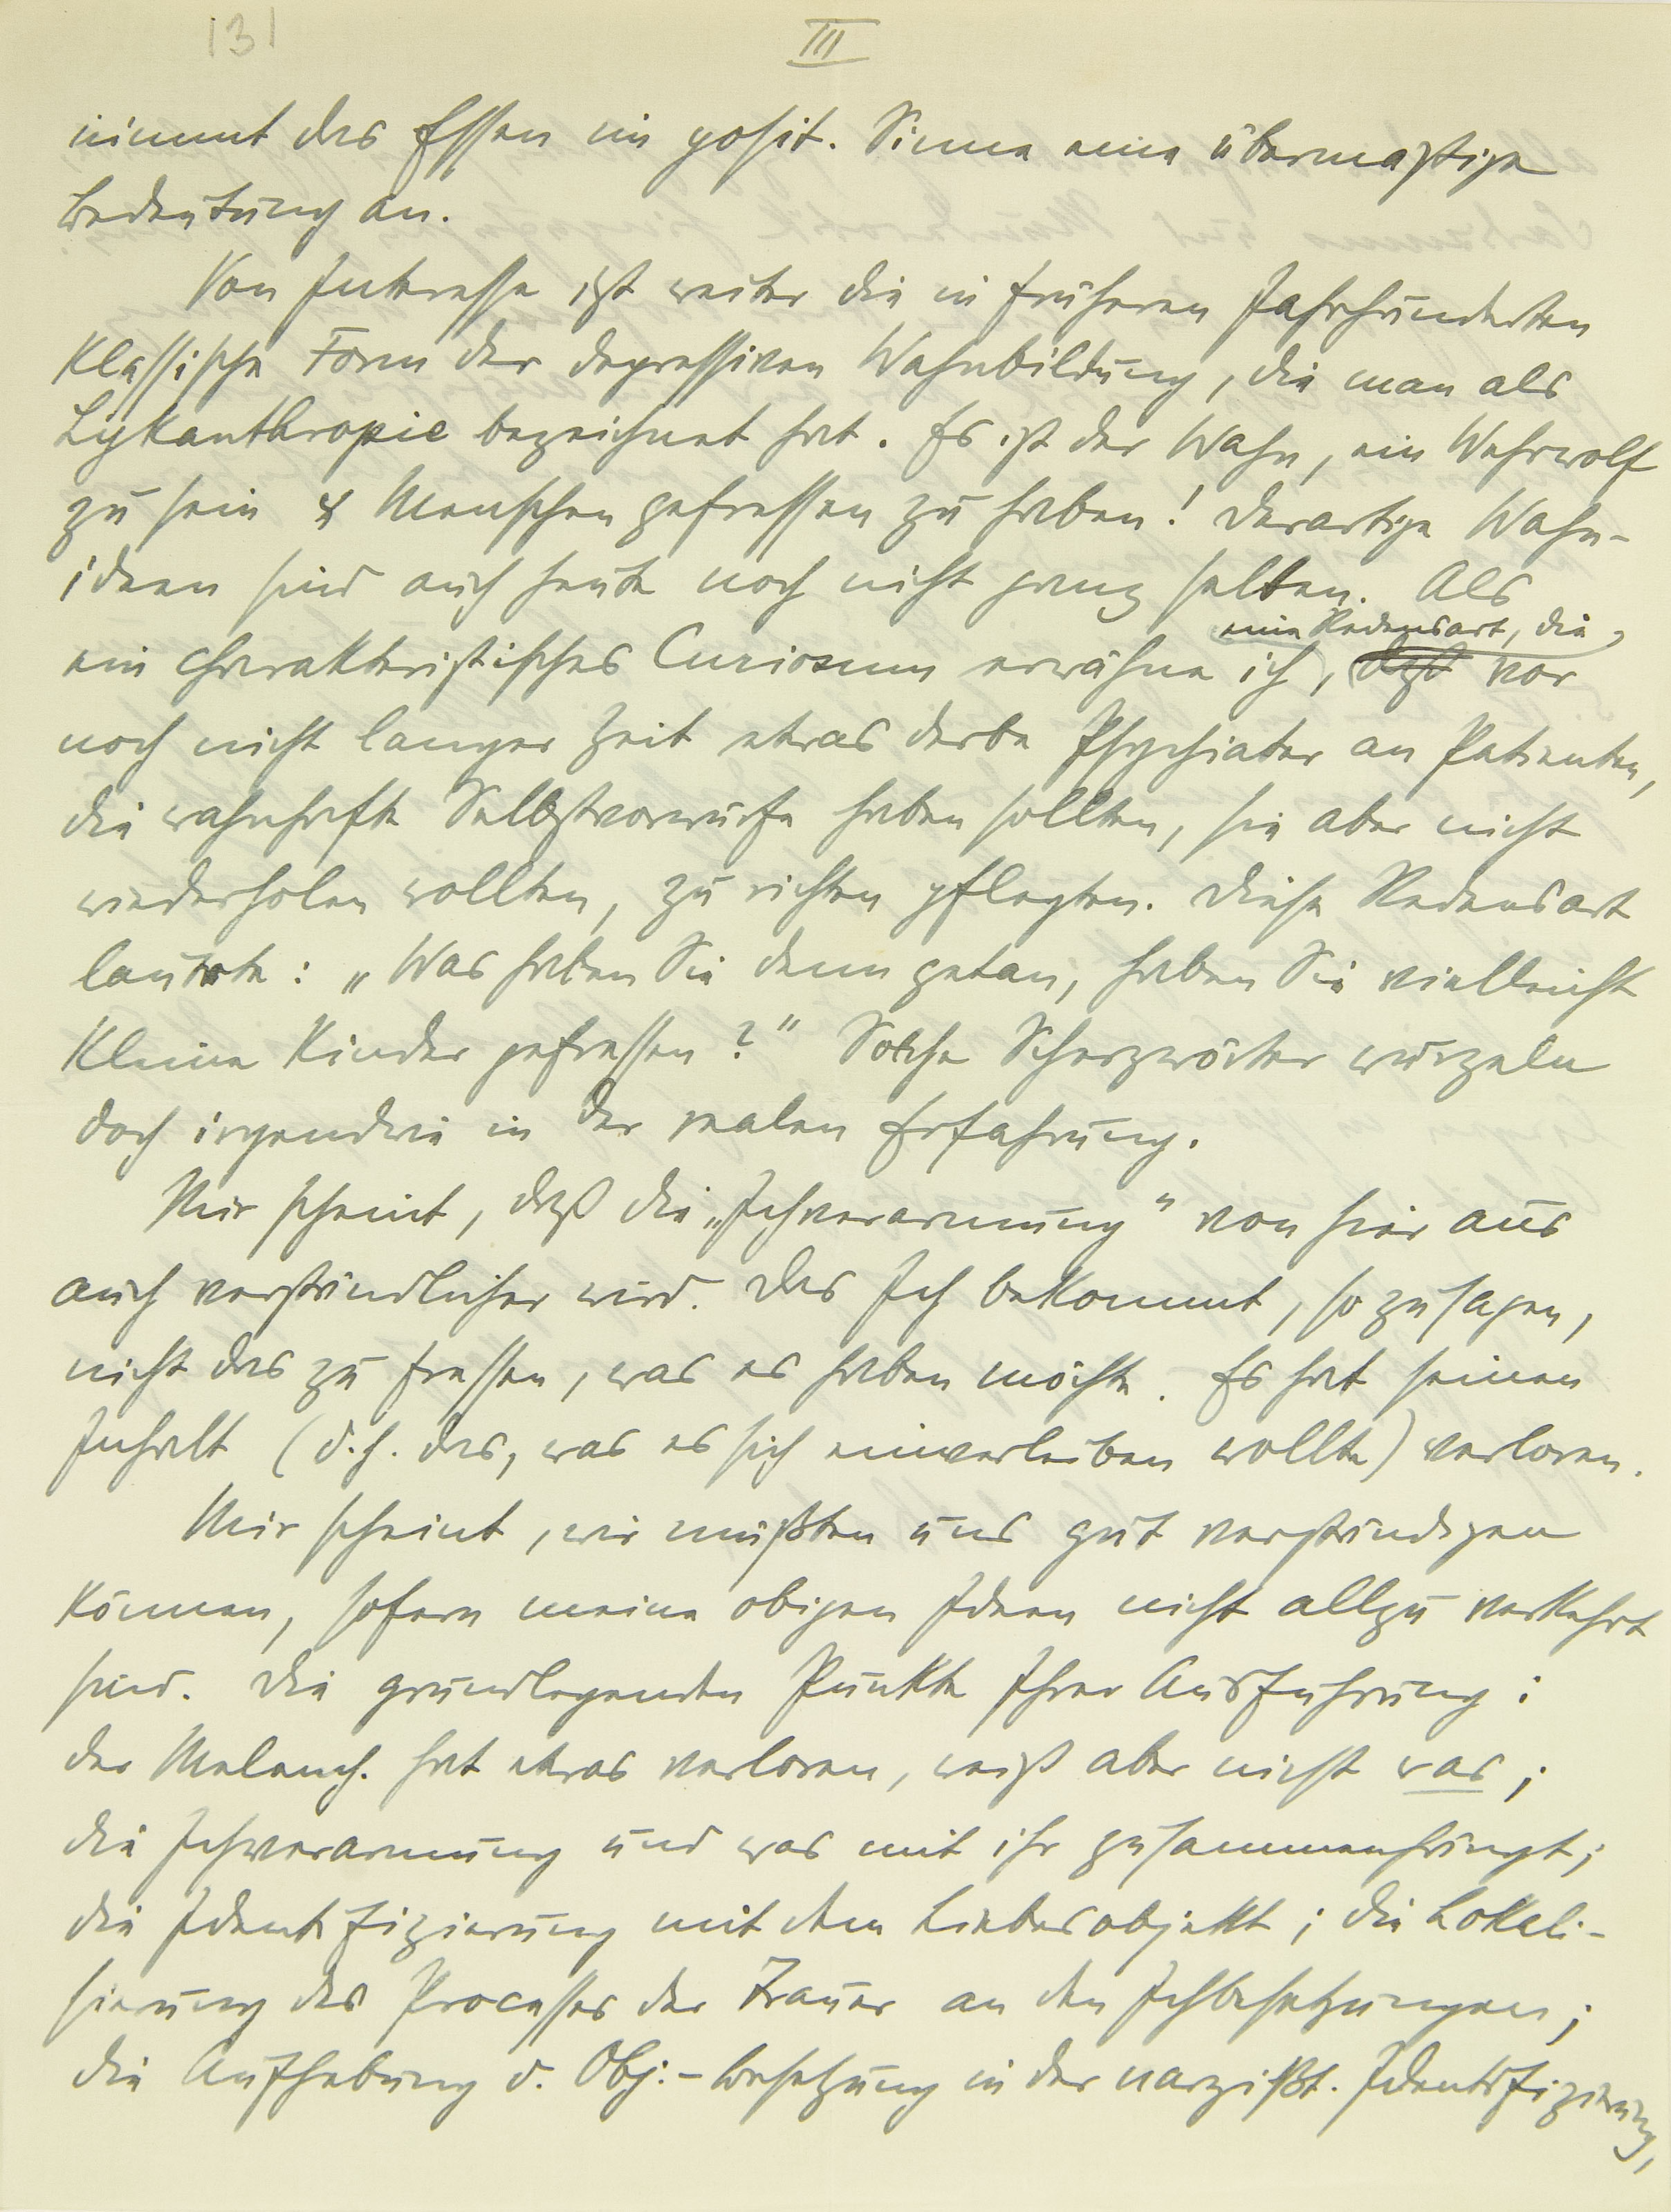 131
III
nimmt das Essen im posit. Sinne eine übermäßige
Bedeutung an.
Von Interesse ist weiter die in früheren Jahrhunderten
klassische Form der depressiven Wahnbildung, die man als
Lykanthropie bezeichnet hat. Es ist der Wahn, ein Wehrwolf
zu sein & Menschen gefressen zu haben! Derartige Wahn-
ideen sind auch heute noch nicht ganz selten. Als
eine Redensart, die,
ein charakteristisches Curiosum erwähne ich, daß vor
noch nicht langer Zeit etwas derbe Psychiater an Patienten,
die wahnhafte Selbstvorwürfe haben sollten, sie aber nicht
wiederholen wollten, zu richten pflegten. Diese Redensart
lautete: „Was haben Sie denn getan, haben Sie vielleicht
kleine Kinder gefressen?" Solche Scherzwörter wurzeln
doch irgendwie in der realen Erfahrung.
Mir scheint, daß die „Ichverarmung" von hier aus
auch verständlicher wird. Das Ich bekommt, sozusagen,
nicht das zu fressen, was es haben möchte. Es hat seinen
Inhalt (d. h. das, was es sich einverleiben wollte) verloren.
Mir scheint, wir müßten uns gut verständigen
können, sofern meine obigen Ideen nicht allzu verkehrt
sind. Die grundlegenden Punkte Ihrer Ausführung:
der Melanch. hat etwas verloren, weiß aber nicht was;
die Ichverarmung und was mit ihr zusammenhängt;
die Identifizierung mit dem Liebesobjekt; die Lokali-
sierung des Processes der Trauer an den Ichbesetzungen;
die Aufhebung d. Obj.-besetzung in der narzißt. Identifizierung,